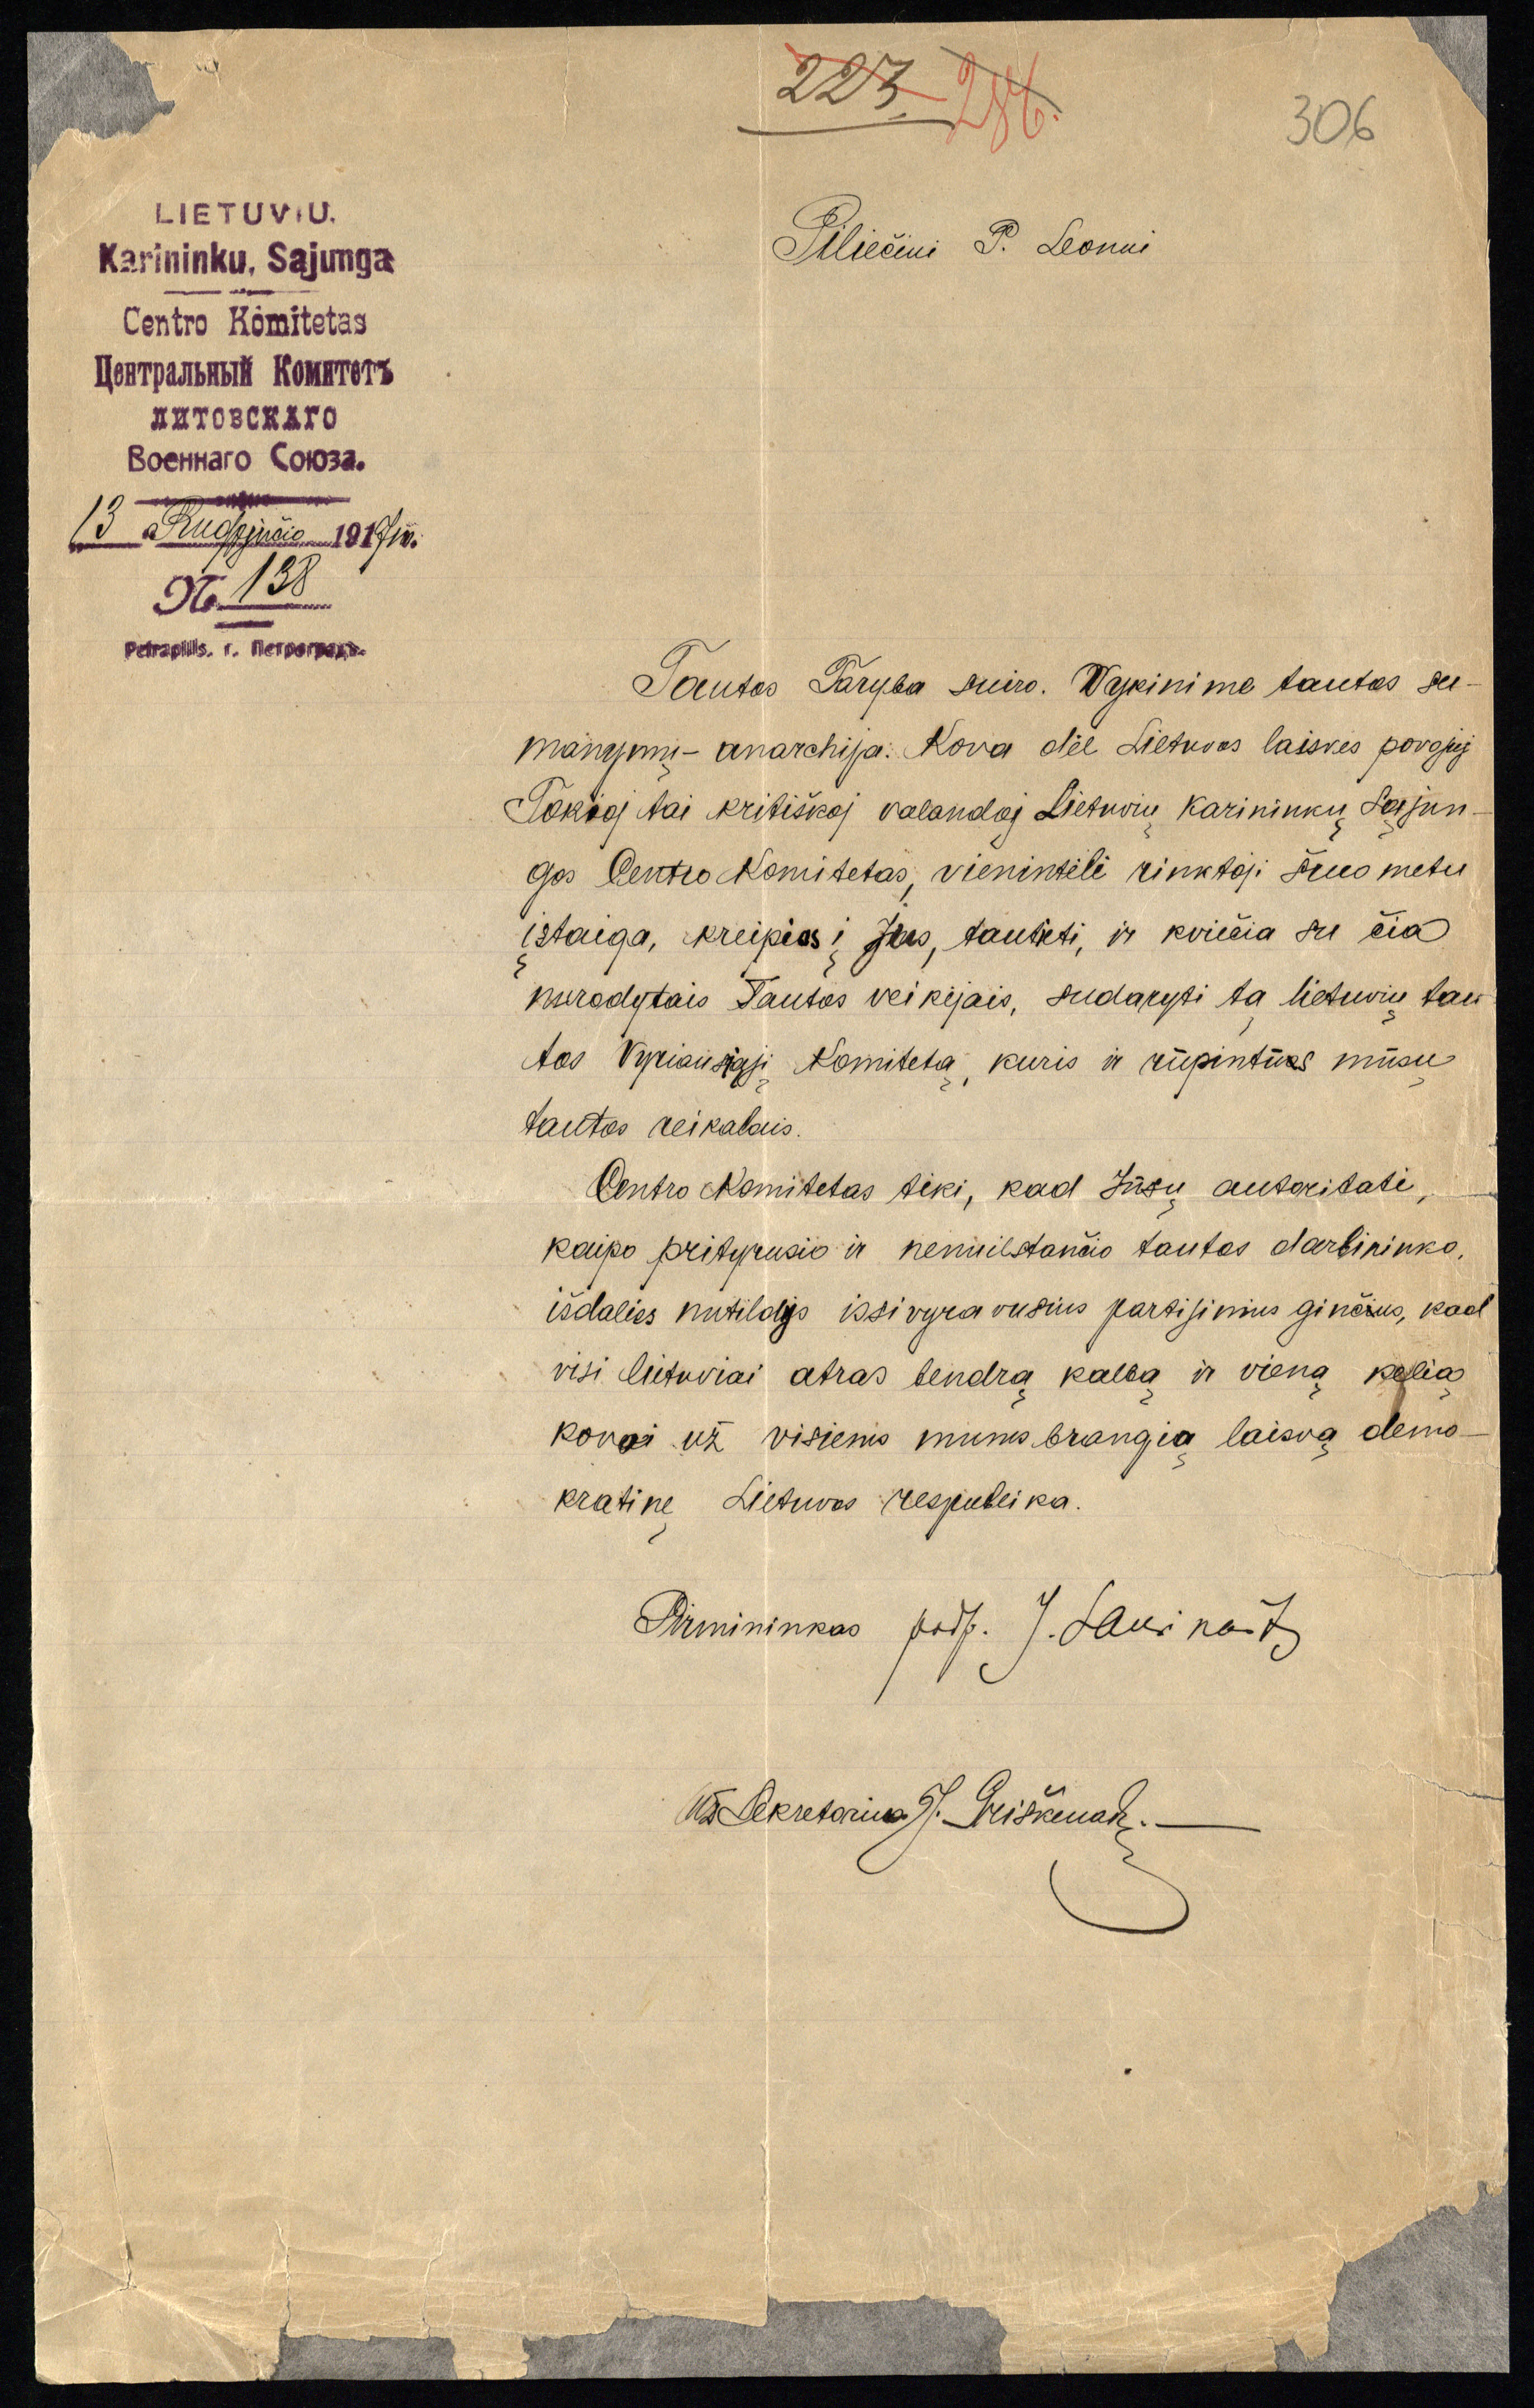 223. 286.
306
LIETUVIU.
Karininku, Sajunga
Centro Komitetas
Центральный Комитетъ
литовскаго
Военнаго Союза.
13 Rugpjučio 1917 m.
№ 138
Petrapilis. г. Петроградъ.
Piliečiui P. Leonui
Tautos Taryba suiro. Vykinime tautos su-
manymų – anarchija. Kova dėl Lietuvos laisvės pavojuj
Tokioj tai kritiškoj valandoj Lietuvių Karininkų Sąjun-
gos Centro Komitetas, vienintėlė rinktoji šiuo metu
įstaiga, kreipias į Jus, tautieti, ir kviečia su čia
nurodytais Tautos veikėjais, sudaryti tą lietuvių tau
tos Vyriausiąjį Komitetą, kuris ir rūpintūs mūsų
tautos reikalais.
Centro Komitetas tiki, kad Jūsų autoritatė,
kaipo prityrusio ir nenuilstančio tautos darbininko,
išdalies nutildys issivyravusius partijinius ginčius, kad
visi lietuviai atras bendrą kalbą ir vieną kelią
kovai už visiems mums brangią laisvą demo-
kratinę Lietuvos respublika.
Pirmininkas J. Laurinait
Už Sekretorius J. Griškenas